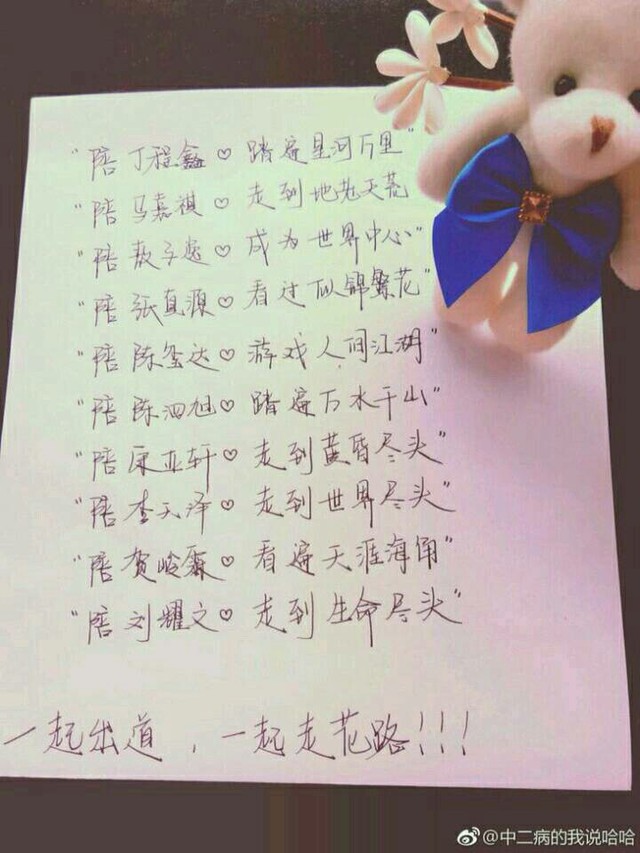 "陪丁程鑫♡踏遍星河万里"
"陪马嘉祺♡走到地老天荒
"陪敖子逸♡成为世界中心"
"陪张真源♡看过似锦繁花"
"陪陈玺达♡游戏人间江湖"
"陪陈泗旭♡踏遍万水千山"
"陪康亚轩♡走到黄昏尽头"
"陪李天泽♡走到世界尽头"
"陪贺峻霖♡看遍天涯海角"
"陪刘耀文♡走到生命尽头"
一起出道，一起走花路!!!
@中二病的我说哈哈